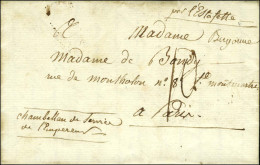 par l'Estafette
A Madame Bayonne
Madame de Bondy
rue de montholon n° 8 f.g montmartre
a Paris
chambellan de service
de l'Empereur